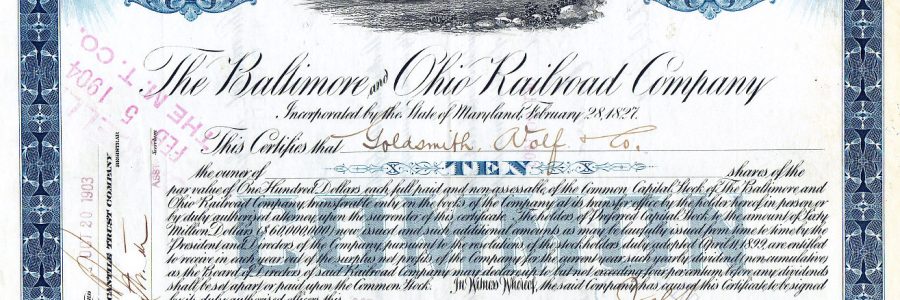 The Baltimore and Ohio Railroad Company
Incorporated by the State of Maryland, February 28, 1827.
This Certifies that Goldsmith, Wolf & Co.
the owner of X TEN X shares of the
par value of One Hundred Dollars each, full paid and non assessable, of the Common Capital Stock of The Baltimore and
Ohio Railroad Company, transferable only on the books of the Company at its transfer office by the holder hereof in person or
by duly authorized attorney upon the surrender of this certificate. The holders of Preferred Capital Stock to the amount of Sixty
Million Dollars ($60,000,000) now issued and such additional amounts as may be lawfully issued from time to time by the
President and Directors of the Company, pursuant to the resolutions of the stockholders duly adopted April 11, 1899, are entitled
to receive in each year out of the surplus net profits of the Company for the current year such yearly dividend (non cumulative)
as the Board of Directors of said Railroad Company may declare up to but not exceeding four per centum, before any dividends
shall be set apart or paid upon the Common Stock. In Witness Whereof, the said Company has caused this Certificate to be signed
by its duly authorized officers this
COMMON
FEB 5 1904
THE M. T. CO.
20 1903
TRUST COMPANY
REGISTRAR